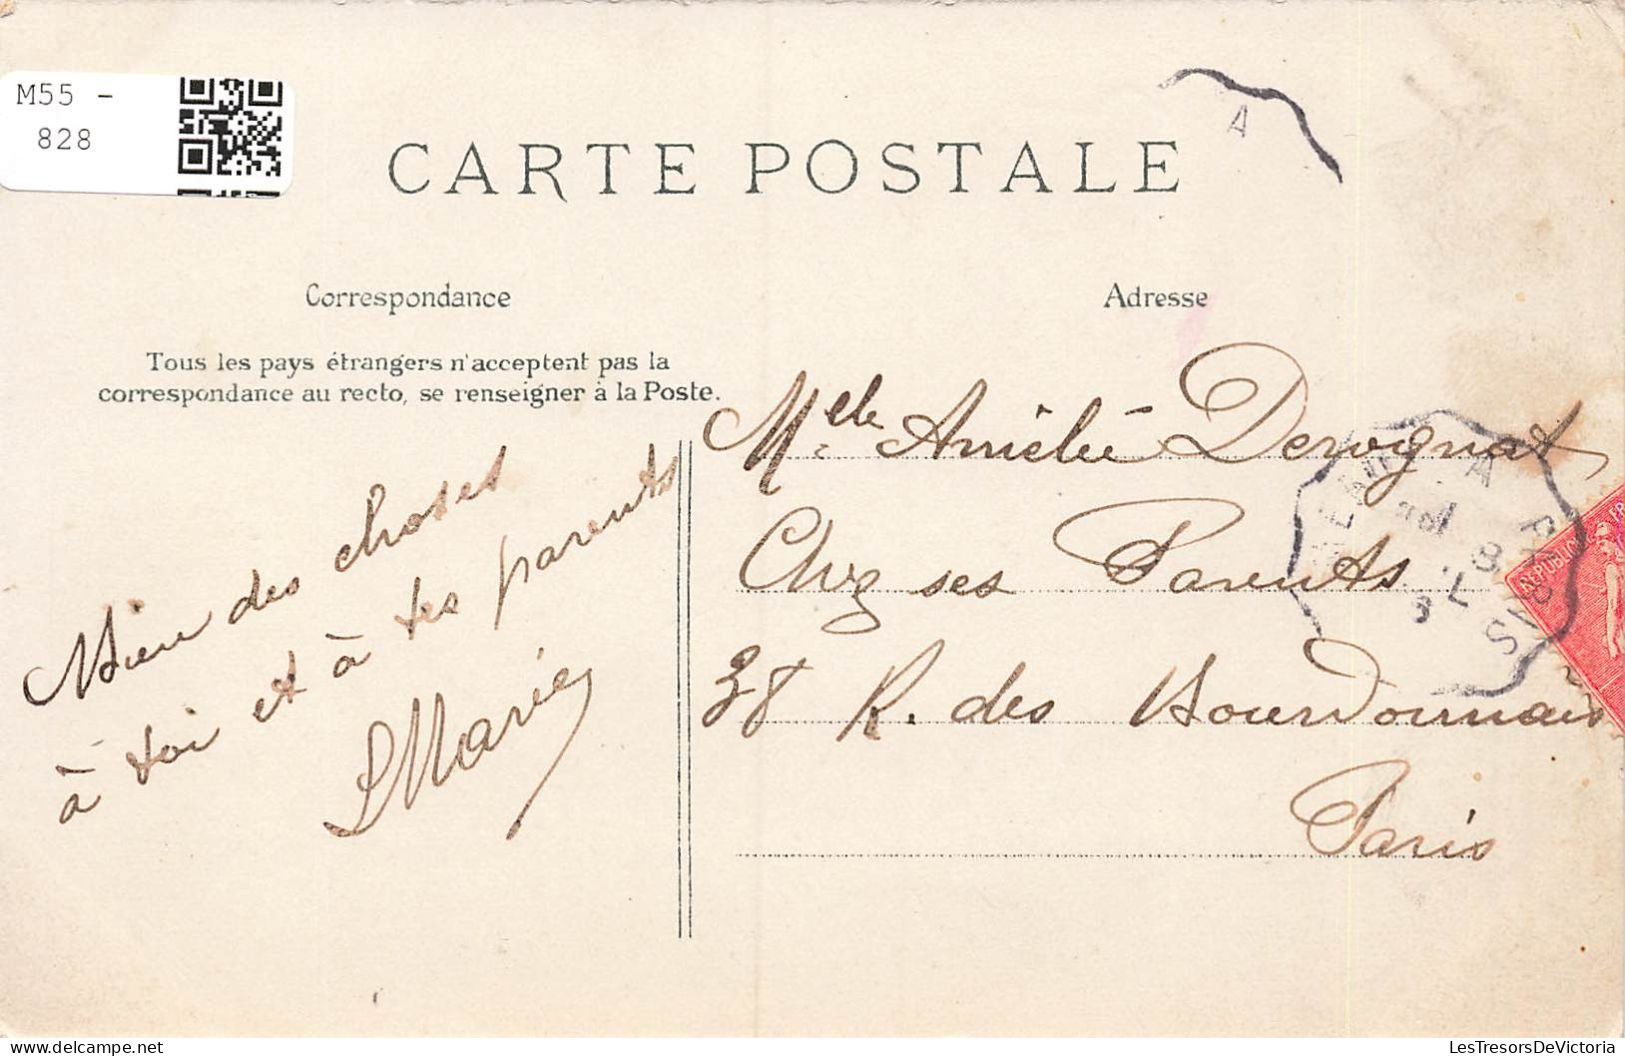 M55 -
828
CARTE POSTALE
Correspondance
Adresse
Tous les pays étrangers n'acceptent pas la
correspondance au recto, se renseigner à la Poste.
Mien des choses
à toi et à tes parents
Marie
Melle Amélie Derognat
Chez ses Parents
38 R. des Bourdonnais
Paris
A
REPUBLIQUE FR
LesTresorsDeVictoria
delcampe.net